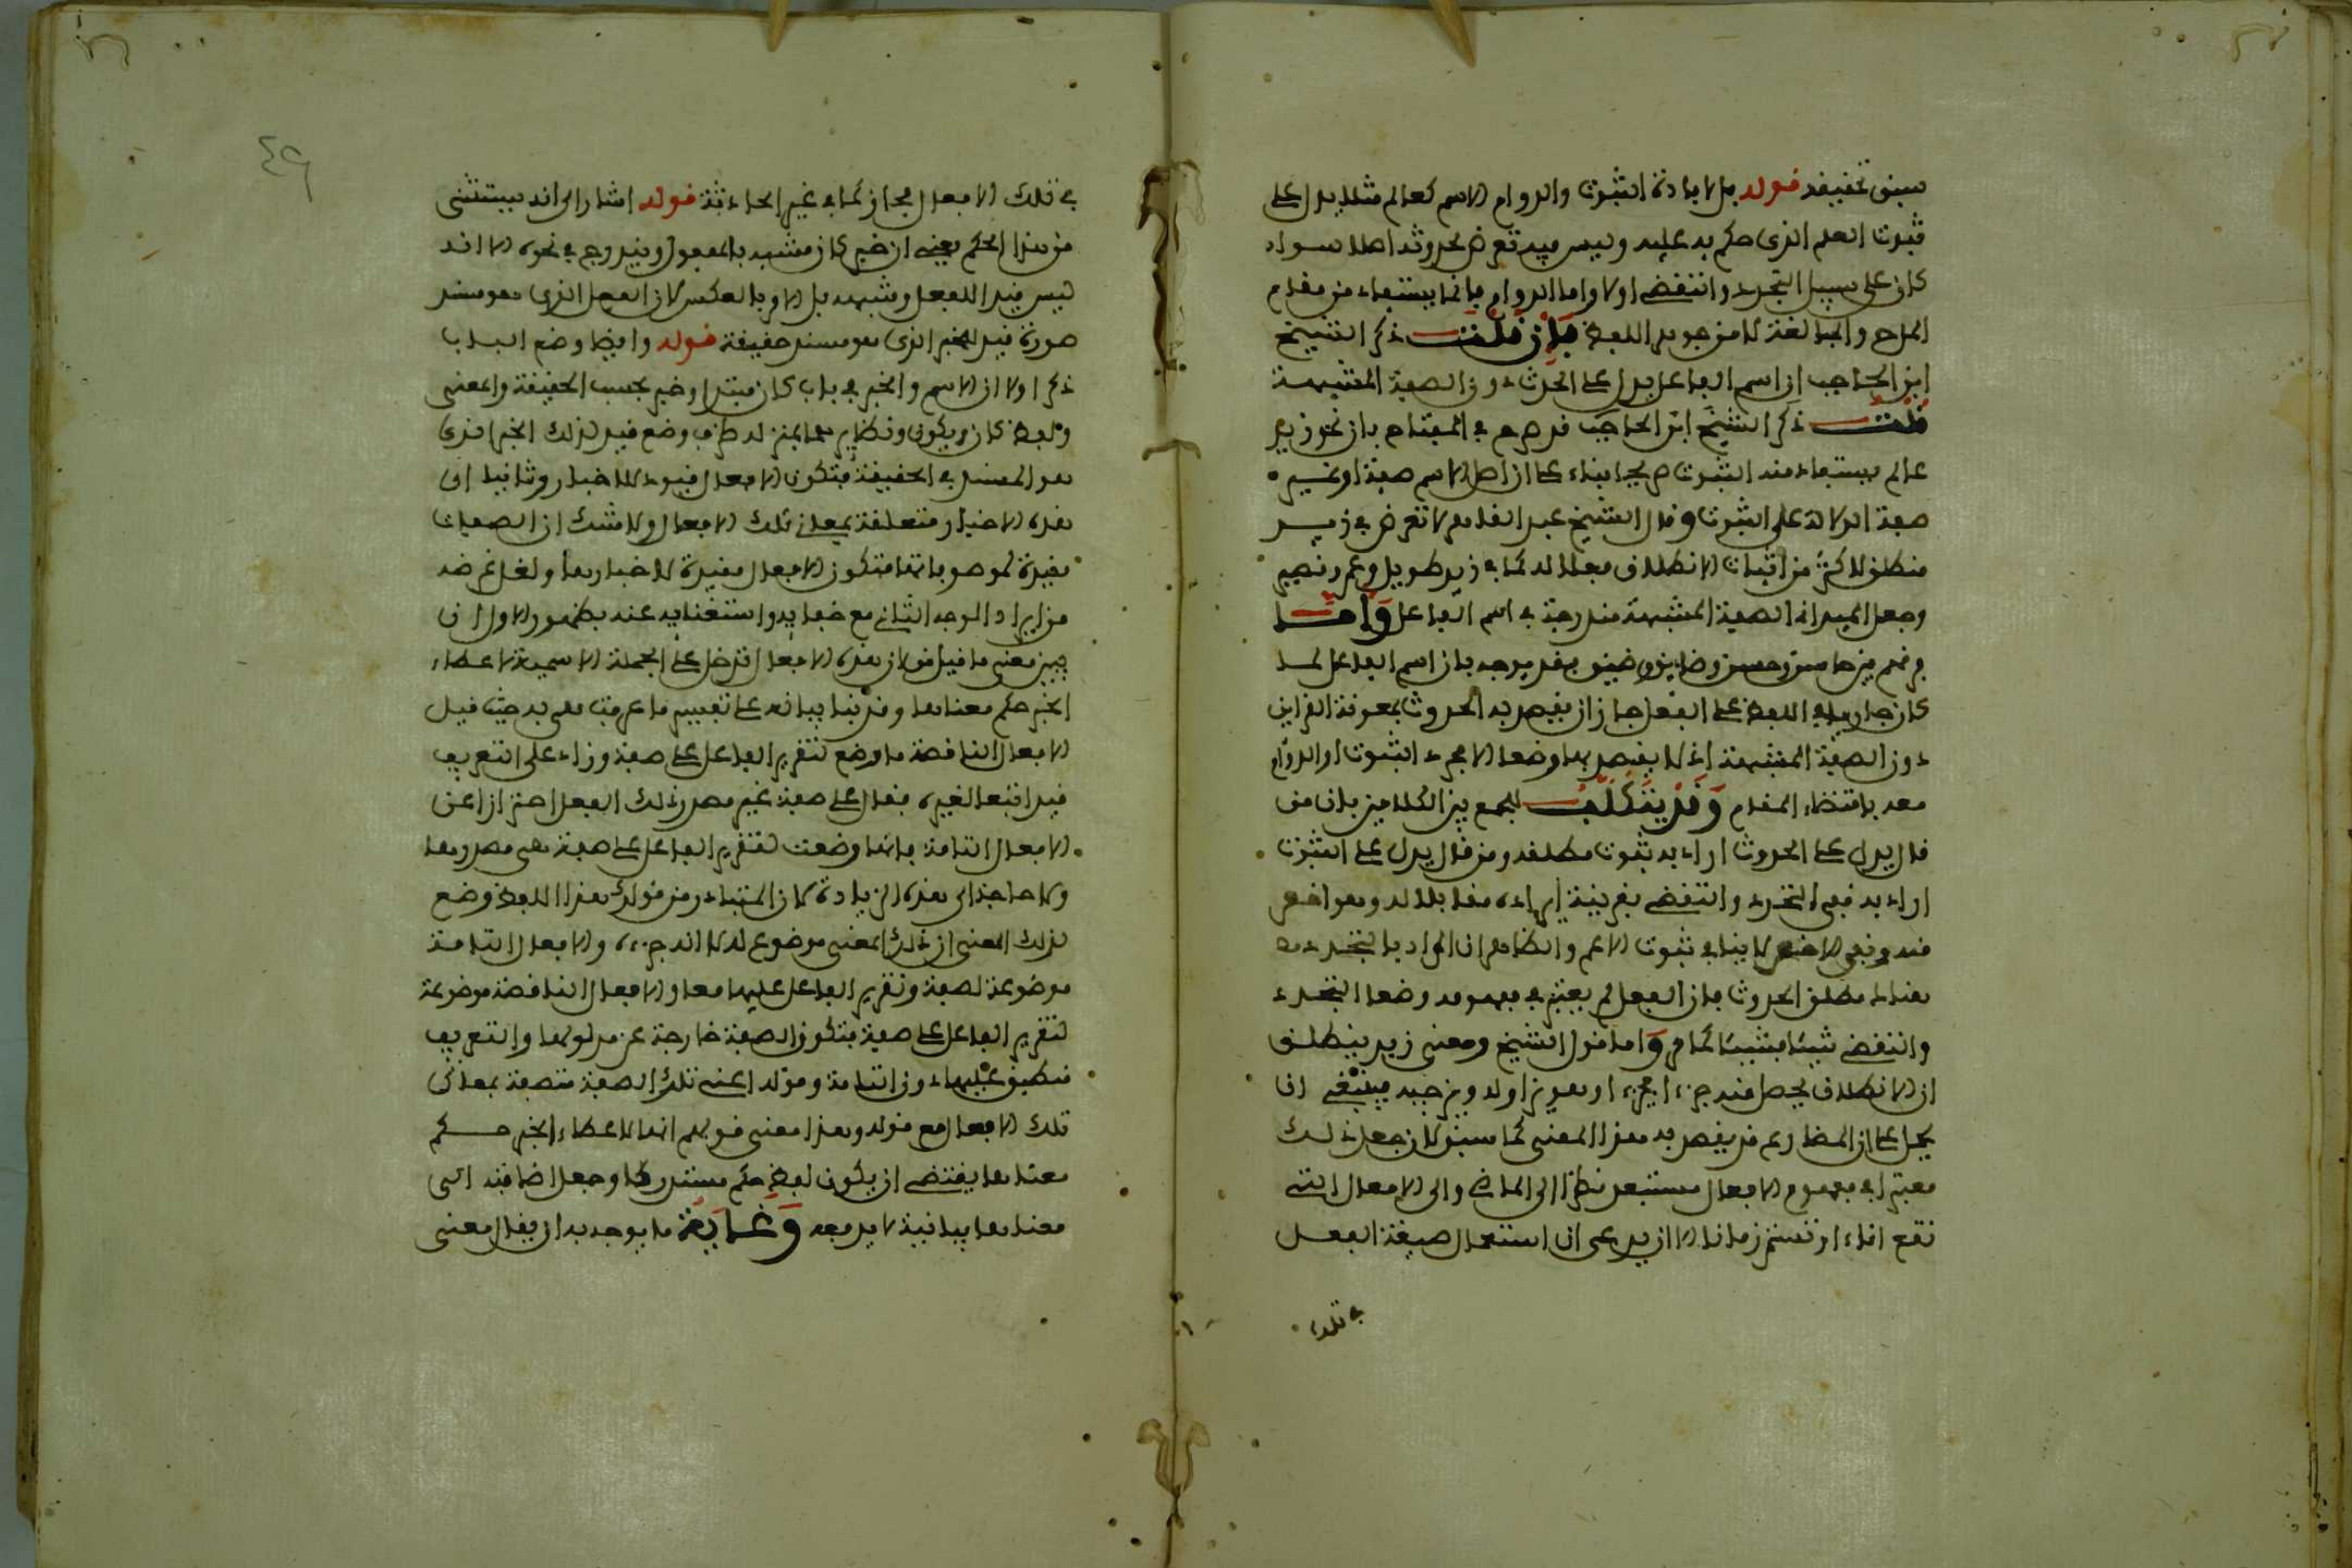 سبق تحقيقه قوله بل لافادة الثبوت والدوام الاسم كعالم مثلا يدل على
ثبوت العلم الذى حكم به عليه وليس فيه تعرض لحدوثه اصلا سواء
كان على سبيل التجدد والتقضى اولا واما الدوام فانما يستفاد من مقام
المدح والمبالغة لا من جوهر اللفظ فان قلت ذكر الشيخ
ابن الحاجب ان اسم الفاعل يدل على الحدث دون الصفة المشبهة
قلت ذكر الشيخ ابن الحاجب قد صرح فى المفتاح بان نحو زيد
عالم يستفاد منه الثبوت صريحا بناء على ان اصل الاسم صفة او غير
صفة الدلالة على الثبوت وقال الشيخ عبد القاهر لا تعرض فى زيد
منطلق لاكثر من اثبات الانطلاق فعلا له كما فى زيد طويل وعمرو قصير
وجعل الميدانى الصفة المشبهة مندرجة فى اسم الفاعل واما
فرقهم بين حاسن وحسن وضايق وضيق فقد يوجه بان اسم الفاعل لما
كان جاريا فى اللفظ على الفعل جاز ان يقصد به الحدوث بمعونة القراين
دون الصفة المشبهة اذ لا يقصد بها وضعا الا مجرد الثبوت او الدوام
معه باقتضاء المقام وقد يتكلف للجمع بين الكلامين بان من
قال يدل على الحدوث اراد به ثبوت مطلقه ومن قال يدل على الثبوت
اراد به نفى التجدد والتقضى بقرينة ايراده مقابلا له وهو اخص
منه ونفى الاخص لا ينافى ثبوت الاعم والظاهر ان المراد بالتجدد
هنا مطلق الحدوث فان الفعل لم يعتبر فى مفهومه وضعا التجدد
والتقضى شيئا فشيئا كما مر واما قول الشيخ ومعنى زيد ينطلق
ان الانطلاق يحصل منه جزءا فجزءا وهو يزاوله ويزجيه فينبغى ان
يحمل على ان المضارع قد يقصد به هذا المعنى كما سبق لان جعل ذلك
معتبرا فى مفهوم الافعال مستبعد نظرا الى الماضى والى الافعال التى
تقع اناء او تستمر زمانا الا ان يدعى ان استعمال صيغة الفعل
فى تلك
٤٩
فى تلك الافعال مجاز كما فى غير الحادثة قوله اشار الى انه يستثنى
من هذا الحكم يعنى ان خبر كان مشبه بالمفعول ويندرج فى نحوه الا انه
ليس قيدا للفعل وشبهه بل الامر بالعكس لان الفعل الذى هو مسند
صورة قيد للخبر الذى هو مسند حقيقة قوله وايضا وضع الباب
ذكر اولا ان الاسم والخبر فى باب كان مبتدا وخبر بحسب الحقيقة والمعنى
ولفظ كان ويكون ونظايرهما بمنزلة ظرف وضع قيدا لذلك الخبر الذى
هو المسند فى الحقيقة فتكون الافعال قيودا للاخبار وثانيا ان
هذه الاخبار متعلقة بمعانى تلك الافعال ولا شك ان الصفات
مقيدة لموصوفاتها فتكون الافعال مقيدة للاخبار بها ولعل غرضه
من ايراد الوجه الثانى مع خفايه واستغنايه عنه بظهور الاول ان
يبين معنى ما قيل من ان هذه الافعال تدخل على الجملة الاسمية لاعطاء
الخبر حكم معناها وقد بنا بيانه على تفسير ما عرفت هى به حيث قيل
الافعال الناقصة ما وضع لتقرير الفاعل على صفة وزاد على التعريف
قيدا اتبعا لغيره فقال على صفة غير مصدر ذلك الفعل احترازا عن
الافعال التامة فانها وضعت لتقرير الفاعل على صفة هى مصدرها
ولا حاجة الى هذه الزيادة لان المتبادر من قولك هذا اللفظ وضع
لذلك المعنى ان ذلك المعنى موضوع له لا انه جزءه والافعال التامة
موضوعة لصفة وتقرير الفاعل عليها معا والافعال الناقصة موضوعة
لتقرير الفاعل على صفة فتكون الصفة خارجة عن مدلولها والتعريف
منطبق عليها دون التامة وقوله اعنى تلك الصفة متصفة بمعانى
تلك الافعال مع قوله وهذا معنى قولهم انها لاعطاء الخبر حكم
معناها يقتضى ان يكون لفظ حكم مستدركا وجعل اضافته الى
معناها بيانية لا يدفعه وغاية ما يوجه به ان يقال معنى